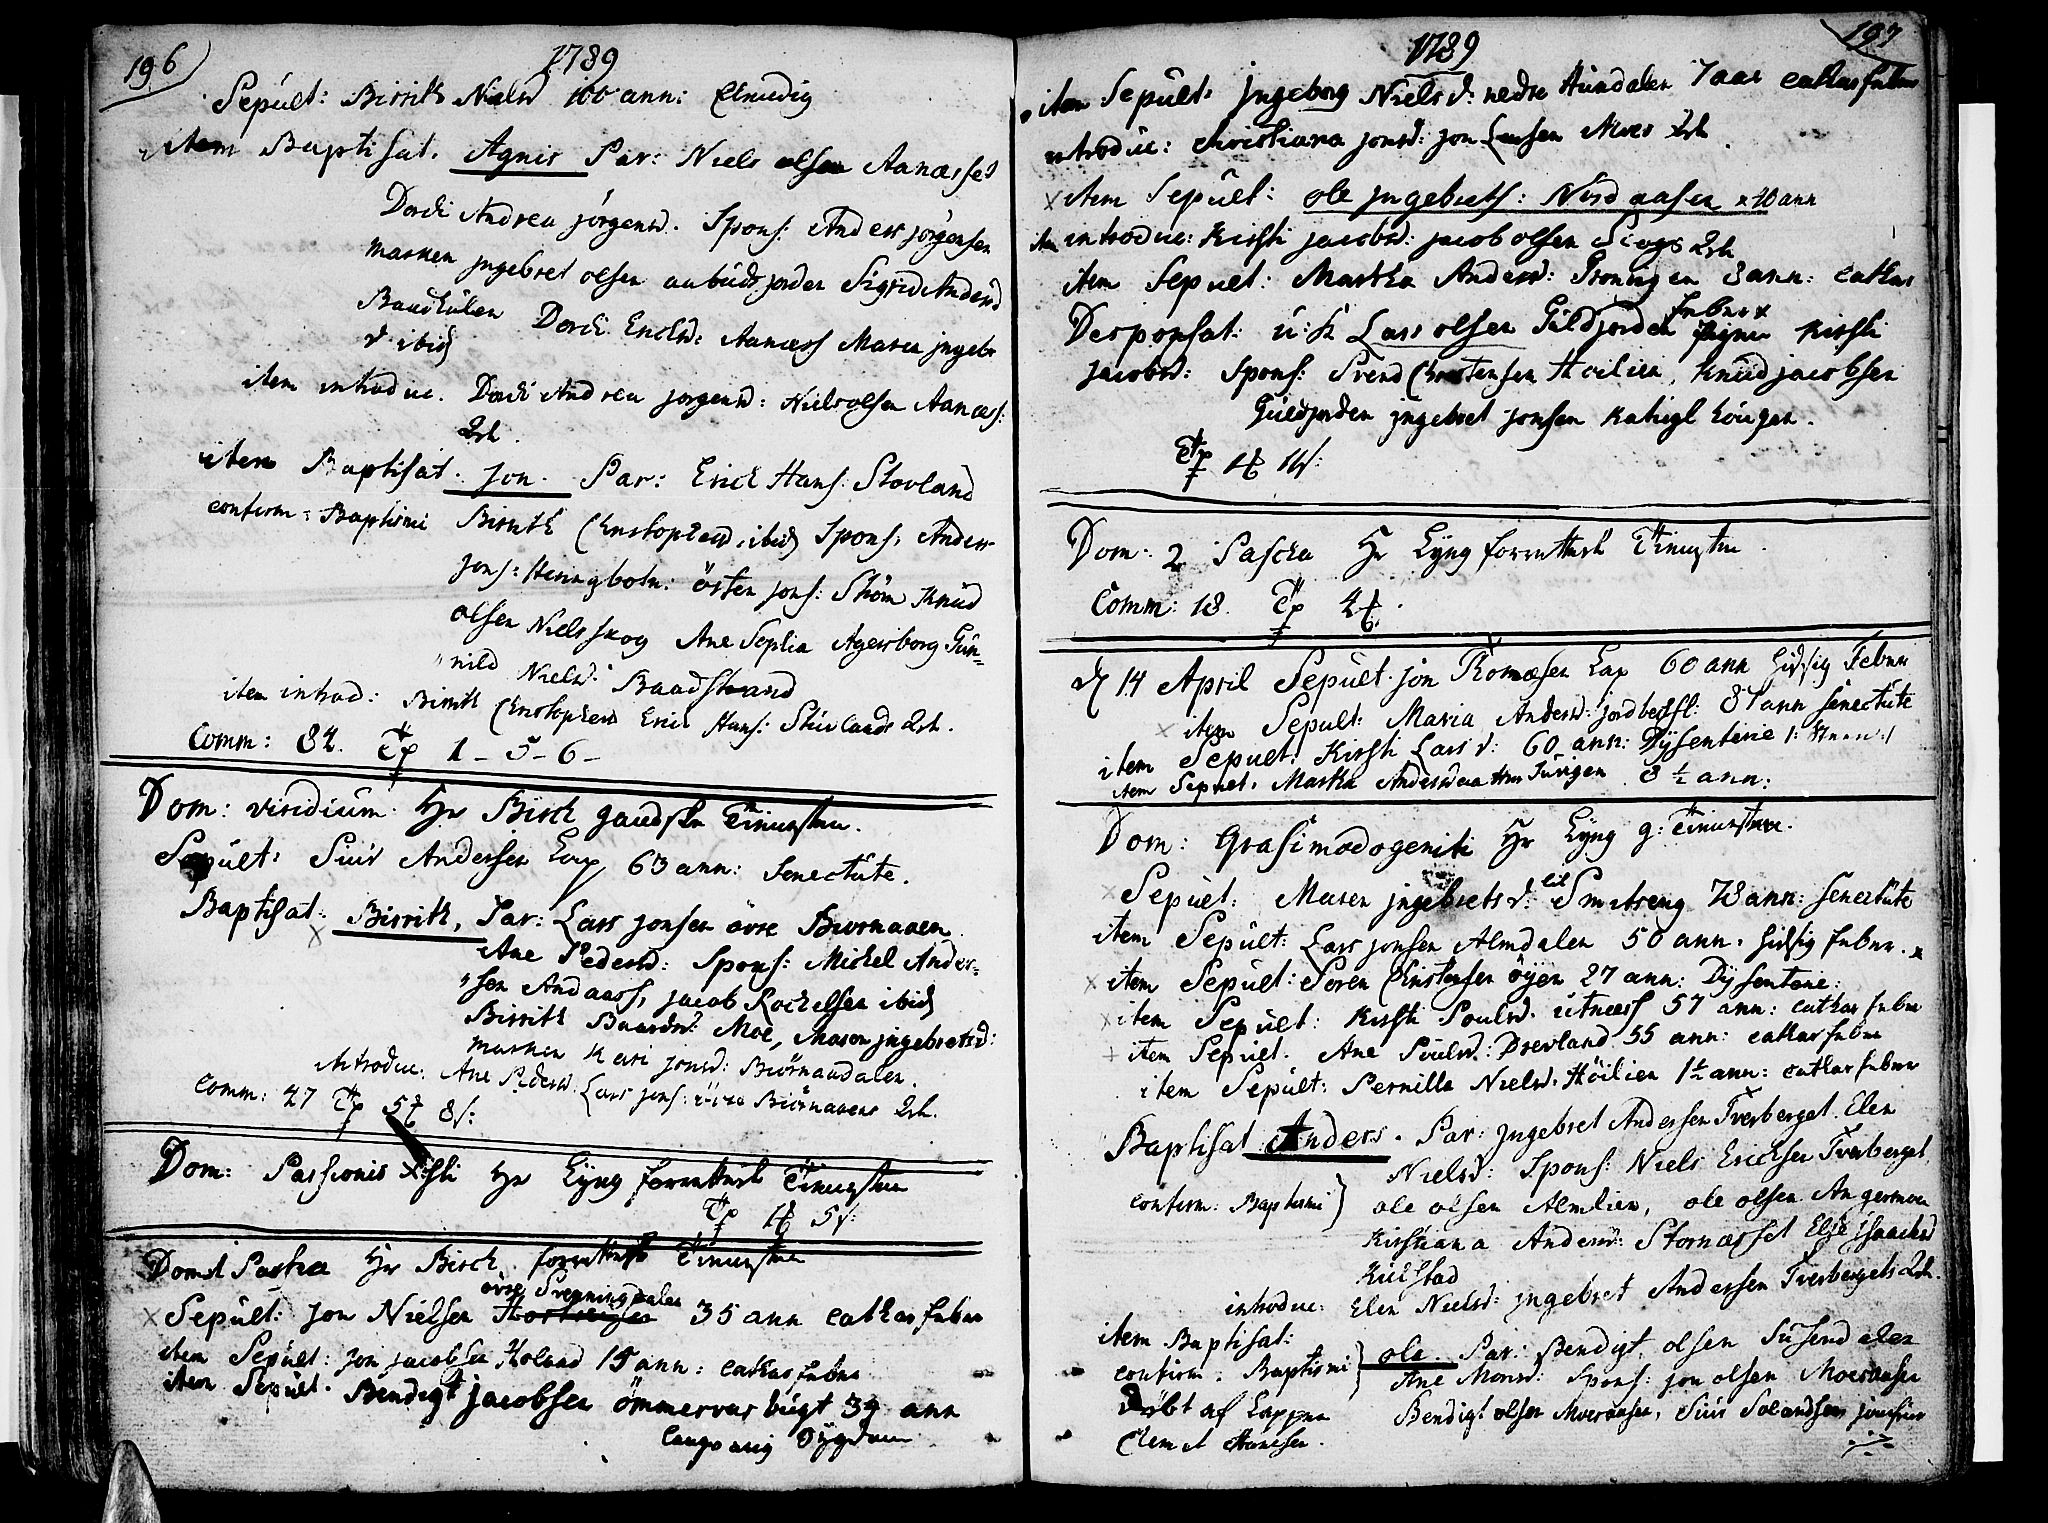 196
1789
Sepult: Birrith Nielsd 100 ann: Elmedig
item Baptisat. Agnis Par: Niels olsen Aanæsset
Dordi Andrea jörgensd. Spons: Anders jörgensen
marken jngebret olsen Sigrid Andersd
Baadhulen Dordi Ericksd: Aanæss Maria jngebr
d ibid
item introduc. Dordi Andrea jorgensd: Niels olsen Aanæs:
2rh.
item Baptisat. jon. Par: Erick Hans: Stovland
confirm: Baptismi Birrith Christophersd ibid Spons: Anders
jons: Heningbotn: östen jons: Ström Knud
olsen Niels skog Ane Sophia Agersborg Gun-
nild Nielsd: Baadstrand
item introd: Birrith Christophersd Erick Hans: Stuvlands 2rh.
Comm: 82. Tp 1 - 5 - 6 -
Dom: viridium Hr Birch Tinnesten.
Sepult: Siur Andersen Lap 63 ann: Senectute.
Baptisat: Birrith, Par: Lars jonsen övre Biornaaen
Ane Pedersd: Spons: Michel Ander-
sen Andaass, jacob Rochelsen ibid
Birrith Baardsd: Moe, Maren jngebretsd:
marken Kari jonsd: Biörnaadalen.
introduc: Ane Pedersd: Lars jons: övre Biörnaaens 2rh.
Comm: 27 Tp 5 8s:
Dom: Passionis Xsti Hr Lÿng forrettet Tinnesten
Tp 5s:
Dom 1 Pascha Hr Birch forrettet Tinnesten
övre Svenningdalen
Sepult: jon Nielsen 35 ann cathar febre
item Sepult: jon jacobsen Holand 15 ann: cathar febre
item Sepult. Bendigt jacobsen ömmervas bugt 39 ann
langvarig Sÿgdom
197
1789
item Sepult: jngeborg Nielsd: nedre Hundalen 7 aar cathar febre
introduc: Christiana jonsd: jon Larsen Moes 2rh.
item Sepult: ole jngebrets: Nordaasen 40 ann
item introduc: Kirsti jacobsd: jacob olsen Skogs 2rh
item Sepult: Martha Andersd: Groningen 8 ann: cathar
febre
Desponsat: u: k Lars olsen Guldjorden pigen Kirsti
jacobsd: Spons: Svend Christensen Höilien, Knud jacobsen
Guldjorden jngebret jonsen hougen.
Tp
Dom: 2 Pascha Hr Lÿng forrettet Tinnesten.
Comm: 18. Tp 4
d 14 April Sepult. jon Tomæsen Lap 60 ann hidsig Feber
item Sepult: Maria Andersd: 87 ann senectute
item Sepult. Kirsti Larsd: 60 ann: Dÿsenterie
item Sepult. Martha Andersd 8 1/2 ann:
Dom: Qvasimodogeniti Hr Lÿng g: Tinnesten.
Sepult: Maren jngebretsd: lil Smitseng 78 ann: senectute
item Sepult: Lars jonsen Almdalen 50 ann. hidsig feber.
item Sepult: Soren Christensen öÿen 27 ann: Dÿsenterie:
item Sepult: Kirsti Poulsd. utnæss 57 ann: cathar febre
item Sepult. Ane Poulsd: Drevland 55 ann: cathar febre
item Sepult: Pernilla Nielsd. Höilien 1 1/2 ann: cathar febre
Baptisat Anders. Par: jngebret Andersen Tverberget Elen
Nielsd: Spons: Niels Ericksen Tverberget,
confirm: Baptismi } ole olsen Almlien, ole olsen Angermoen
Kirstiana Andersd: Stornæsset Else jsaachsd
Kulstad
introduc: Elen Nielsd: jngebret Andersen Tverbergets 2rh.
item Baptisat:
confirm. Baptismi } ole. Par: Bendigt olsen Susendalen
Ane Monsd: Spons: jon olsen Moeraasen
Döbt af Lappen Bendigt olsen Moeraasen, Siur
Clemet